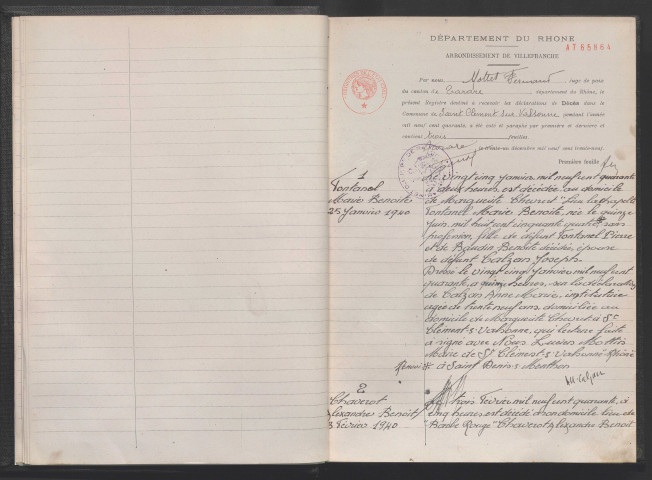 DÉPARTEMENT DU RHONE
AT55864
ARRONDISSEMENT DE VILLEFRANCHE
Par nous, Mottet Fernand Juge de paix
du canton de Tarare, département du Rhône, le
présent Registre destiné à recevoir les déclarations de Décès dans la
Commune de Saint Clément sur Valsonne pendant l'année
mil neuf cent quarante, a été coté et paraphé par première et dernière et
contient onze feuillets.
Tarare, décembre mil neuf cent trente-neuf.
Première feuille
1
Fontanel
Marie Benoite
25 Janvier 1940
Le vingt cinq Janvier mil neuf cent quarante
à deux heures est décédée au domicile
de Marguerite Chevret "Lieu La Chapelle"
Fontanel Marie Benoite, née le quinze
Juin mil huit cent cinquante quatre sans
profession, fille de défunt Fontanel Pierre
et de Baudin Benoite décédée, épouse
de défunt Calzan Joseph.
Dressé le vingt cinq Janvier mil neuf cent
quarante, à quinze heures, sur la déclaration
de Calzan Anne Marie, institutrice
agée de trente neuf ans, domiciliée au
domicile de Marguerite Chevret à St
Clément s. Valsonne, qui lecture faite
a signé avec Nous Lucien
Maire de St Clément s. Valsonne Rhône
Renvoi à Saint Denis
2
Chaverot
Alexandre Benoit
3 Février 1940
Le trois Février mil neuf cent quarante, à
cinq heures est décédé à son domicile lieu de
"Barbe Rouge" Chaverot Alexandre Benoit